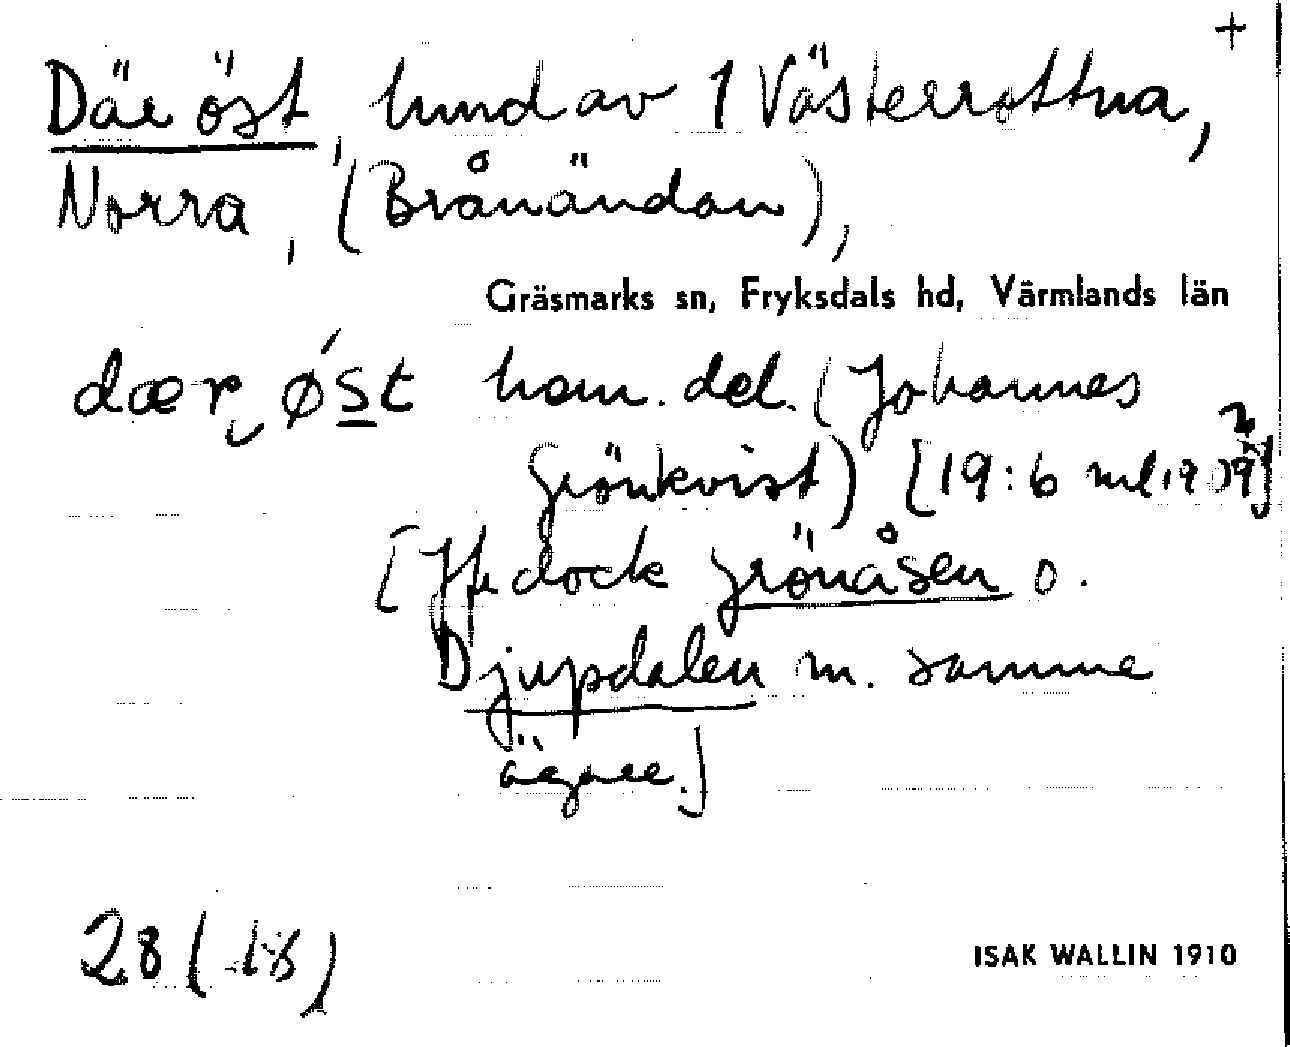 +
Där öst, hmd av 1 Västerrottna,
Norra, (Brånändan),
Gräsmarks sn, Fryksdals hd, Värmlands län
dær øst hem. del. (Johannes
Grönkvist) [19:6 ml 1909]
[Jfr dock Grönåsen o.
Djupdalen m. samme
ägare.]
28 (18)
ISAK WALLIN 1910